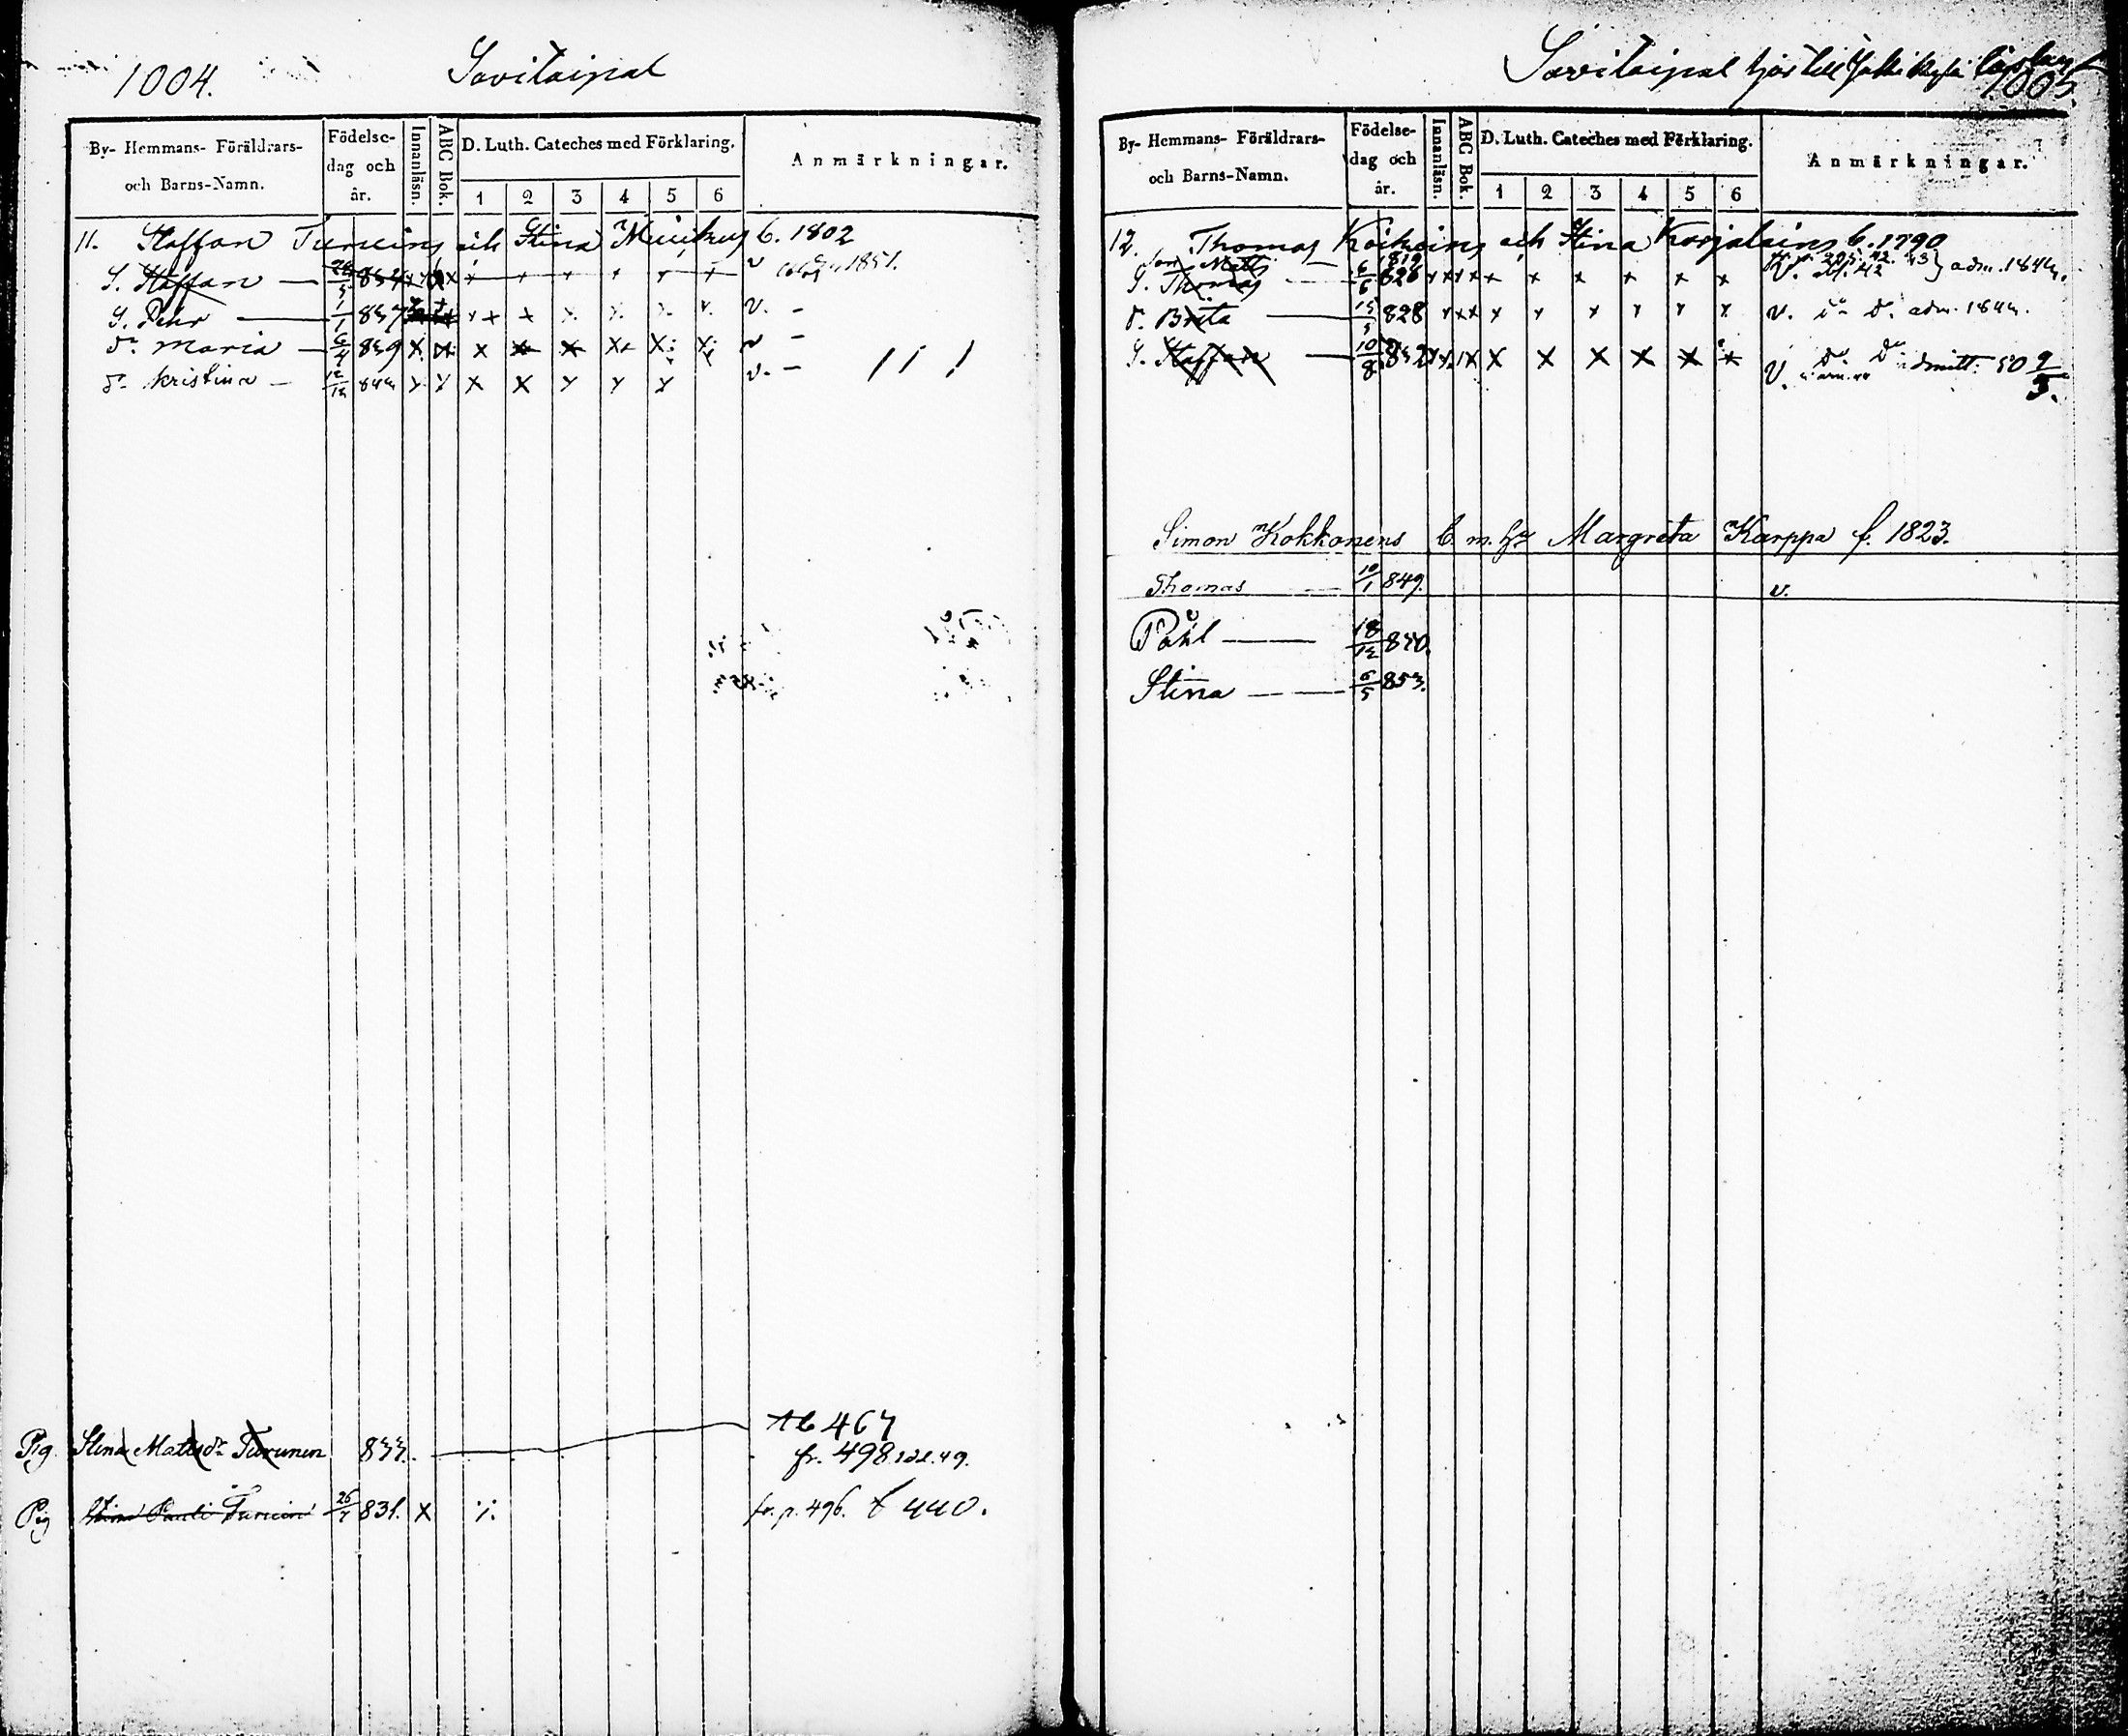 1004.
Savitaipal
By- Hemmans- Föräldrars- och Barns-Namn.
Födelse- dag och år.
Innanläsn.
ABC Bok.
D. Luth. Cateches med Förklaring.
1 2 3 4 5 6
Anmärkningar.
11. Staffan och Stina b. 1802
S. Staffan 834 x x x x x x 1851.
S. Pehr 1/1 837 x x x x x x v. -
dr Maria 6/4 839 x x x x x x x v -
dr Kristina x x x x x x x v. -
Pig Stina Matsdr Turunen 833.
467
fr. 498 49.
Pig 831. x fr. p. 496. t 440.
Savitaipal till
1005.
By- Hemmans- Föräldrars- och Barns-Namn.
Födelse- dag och år.
Innanläsn.
ABC Bok.
D. Luth. Cateches med Förklaring.
1 2 3 4 5 6
Anmärkningar.
12. Thomas och Stina Karjalains b. 1790
Matts 1819
S. Thomas 6/6 826 x x x x x x x x x x v. adm. 1844.
d. Brita 15/5 828 x x x x x x x x x v. do do adm. 1844.
S. Staffan 10/8 832 x x x x x x x x v. do do admitt. 50 9/3.
Simon Kokkonens b. m. h. Margreta Karppa f. 1823.
Thomas 10/1 849. v.
Påhl 18/12 850.
Stina 6/5 853.